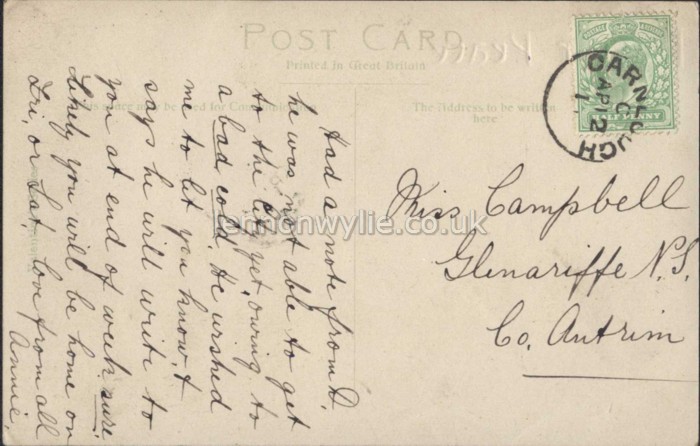 POST CARD
Printed in Great Britain
The Address to be written
here
HALF PENNY
CARNLOUGH
C
AP 12
Miss Campbell
Glenariffe N.S.
Co. Antrim
Had a note from D.
he was not able to get
to the City yet, owing to
a bad cold, He wished
me to let you know, &
says he will write to
you at end of week sure
Likely you will be home on
Fri, or Sat, love from all
Annie.
lennonwylie.co.uk